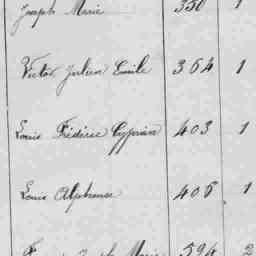 Joseph Marie 350 1
Victor Julien Emile 364 1
Louis Fréderic Cyprien 403 1
Louis Alphonse 405 1
Joseph Marie 594 2